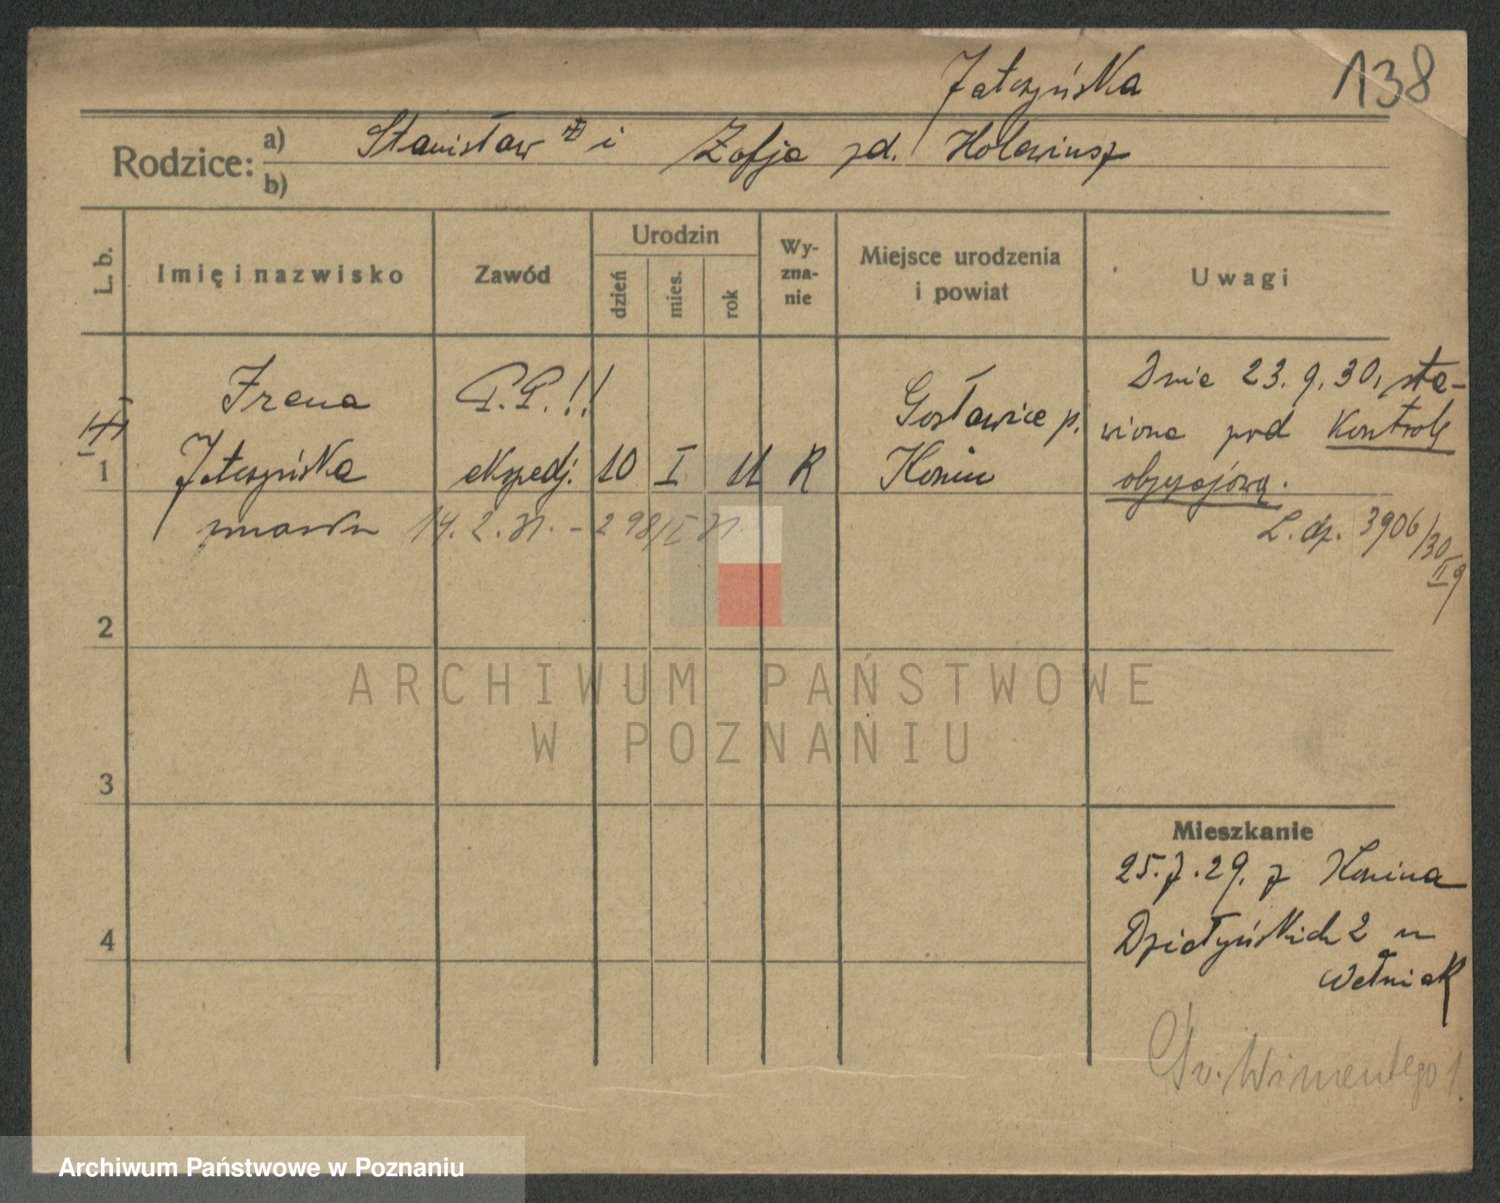 138
Jałczyńska
Rodzice: a) Stanisław i Zofja zd. Holewiusz
b)
L. b.
Imię i nazwisko
Zawód
Urodzin
dzień
mies.
rok
Wy-
zna-
nie
Miejsce urodzenia
i powiat
Uwagi
1
Irena
Jałczyńska
P.P.!!
ekspedj.
10 I 11 R
Gosławice p.
Konin
Dnia 23.9.30, sta-
wiona pod kontrolę
obyczajową.
L. dz. 3906/30
zmarła 14.2.31. - 298/I 31
2
3
4
Mieszkanie
25.7.29. z Konina
Działyńskich 2 u
Wełniak
Św. Wincentego 1.
ARCHIWUM PAŃSTWOWE
W POZNANIU
Archiwum Państwowe w Poznaniu